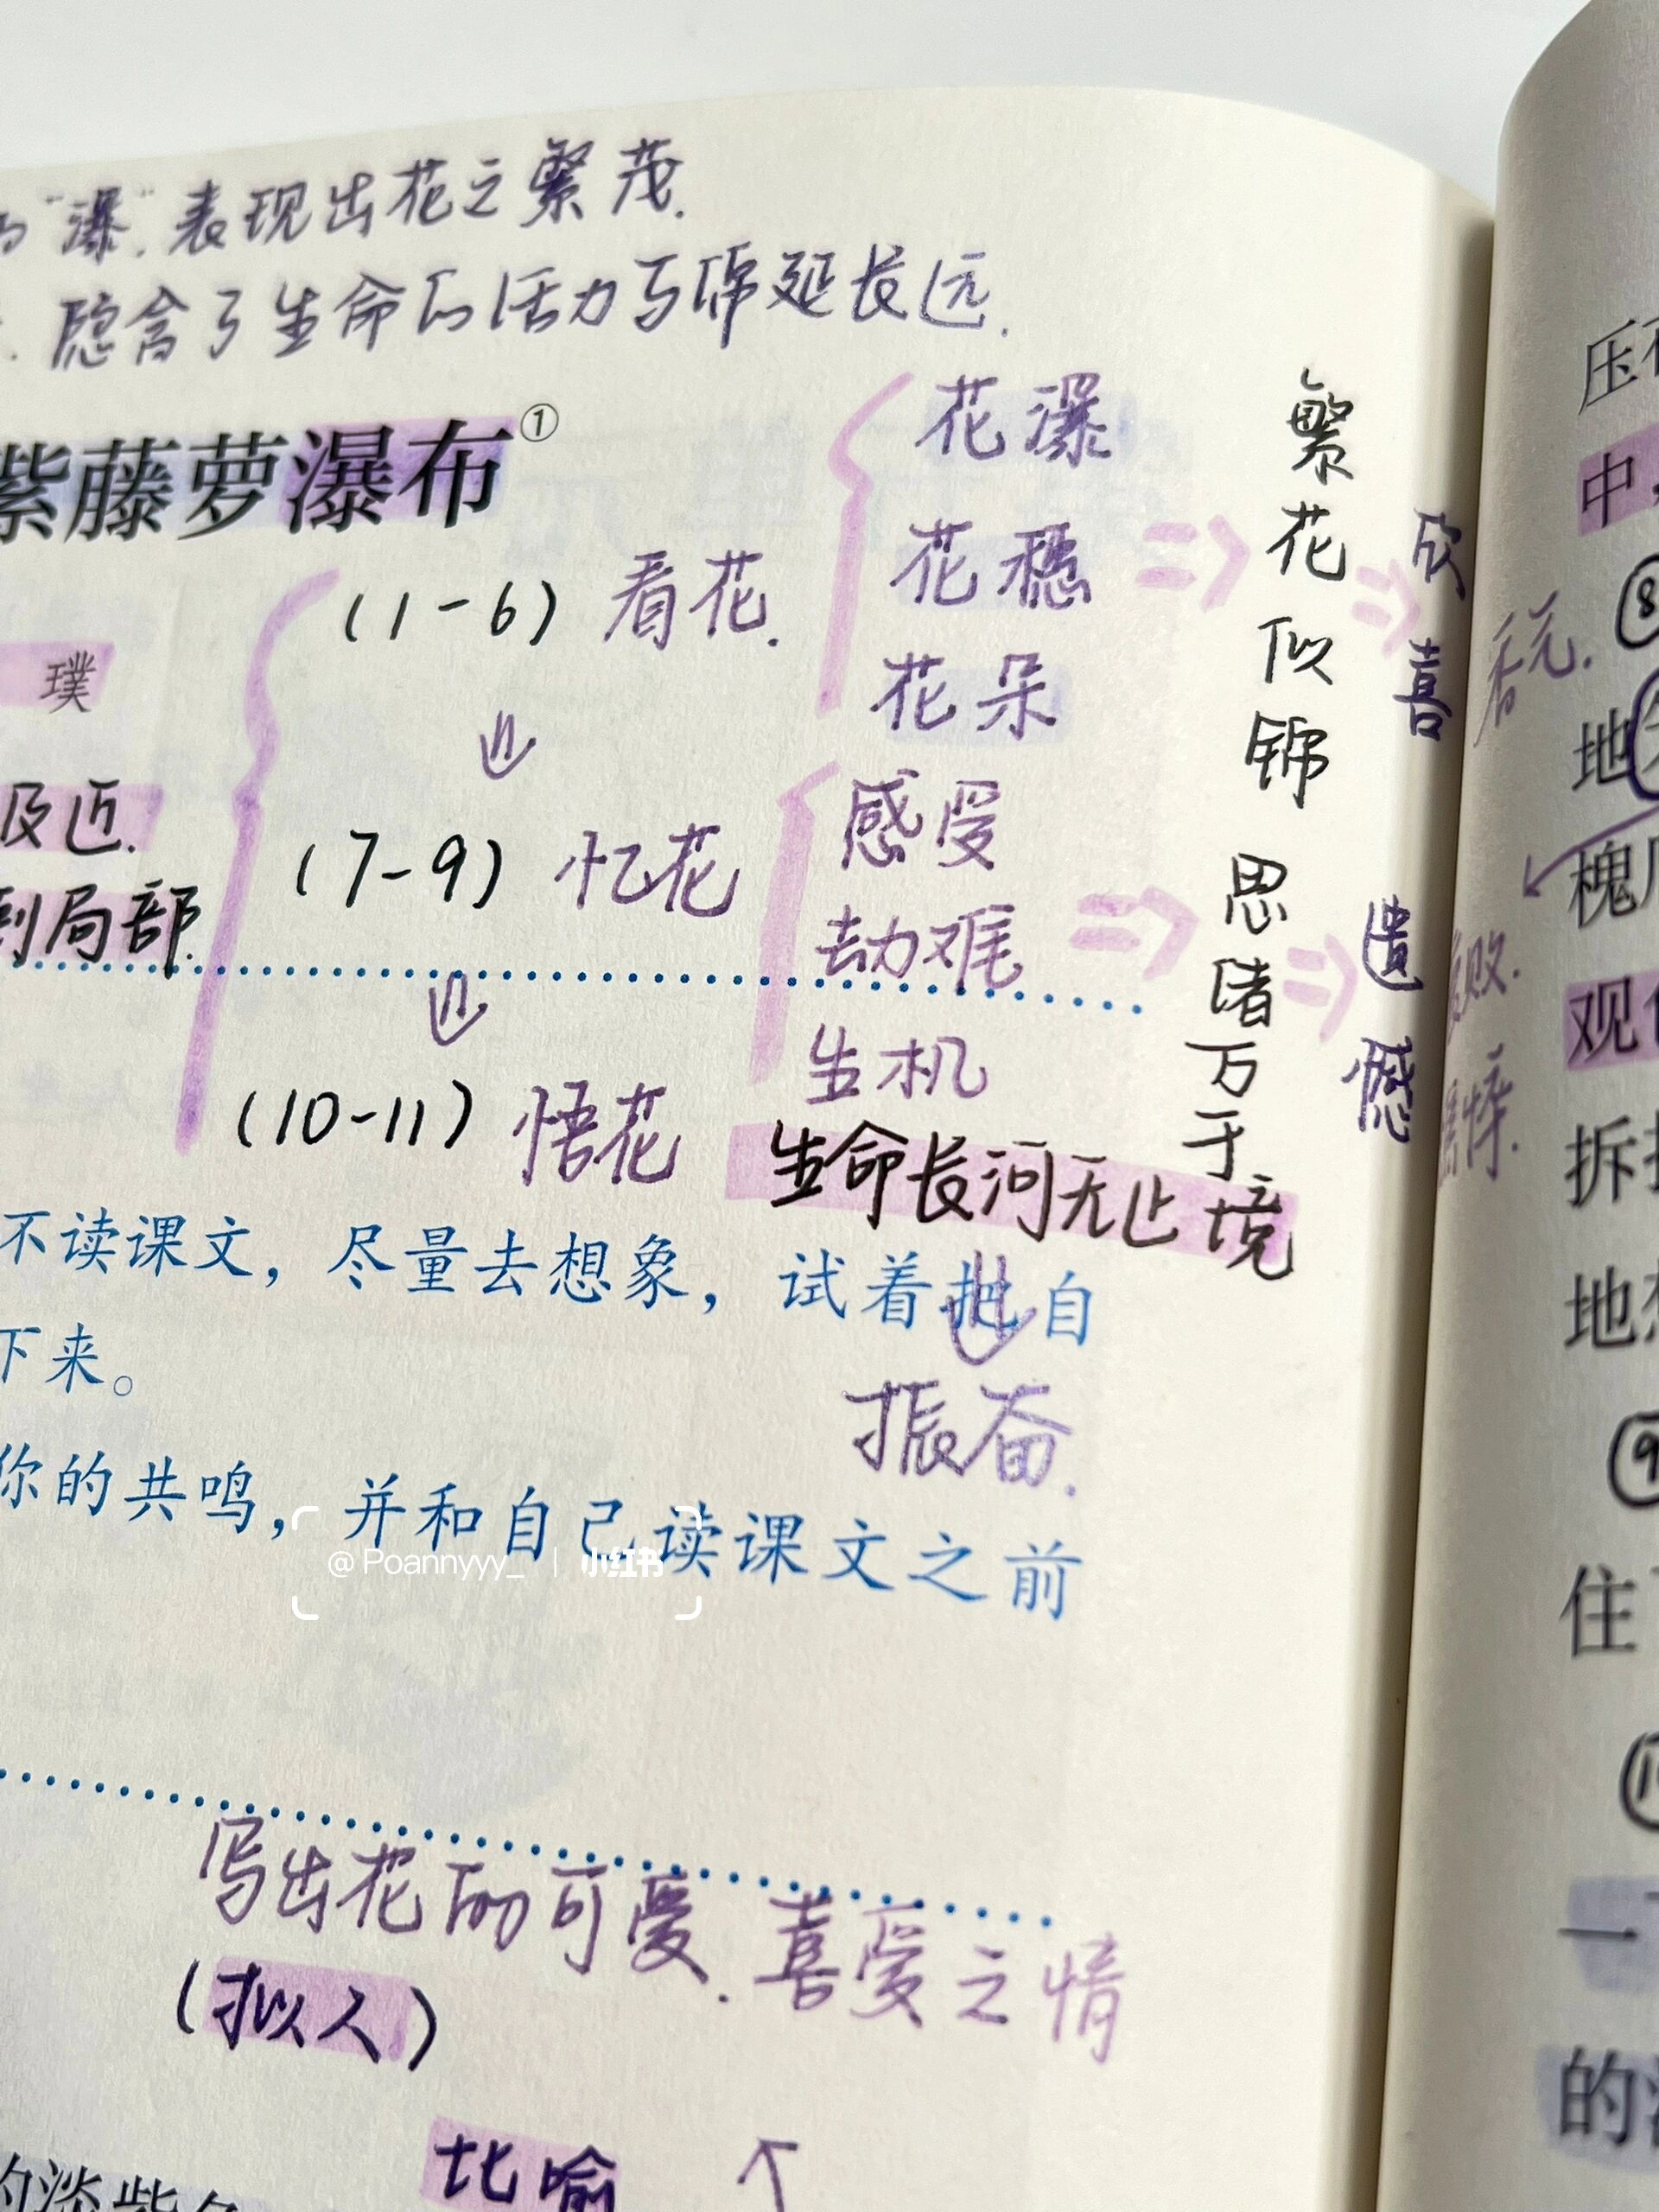 "瀑".表现出花之繁茂.
隐含了生命的活力与绵延长远.
紫藤萝瀑布①
花瀑
花穗
花朵
繁花似锦
欣喜
(1-6) 看花.
璞
及近.
到局部.
(7-9) 忆花
感受
劫难
生机
思绪万千
遗憾
(10-11) 悟花
生命长河无止境
不读课文，尽量去想象，试着把自
下来。
振奋.
你的共鸣，并和自己读课文之前
@Poannyyy_ | 小红书
写出花的可爱.喜爱之情
(拟人)
比喻
的淡紫色
压
中，
⑧
地
槐
败.
观
拆
地
⑨
住
一
的